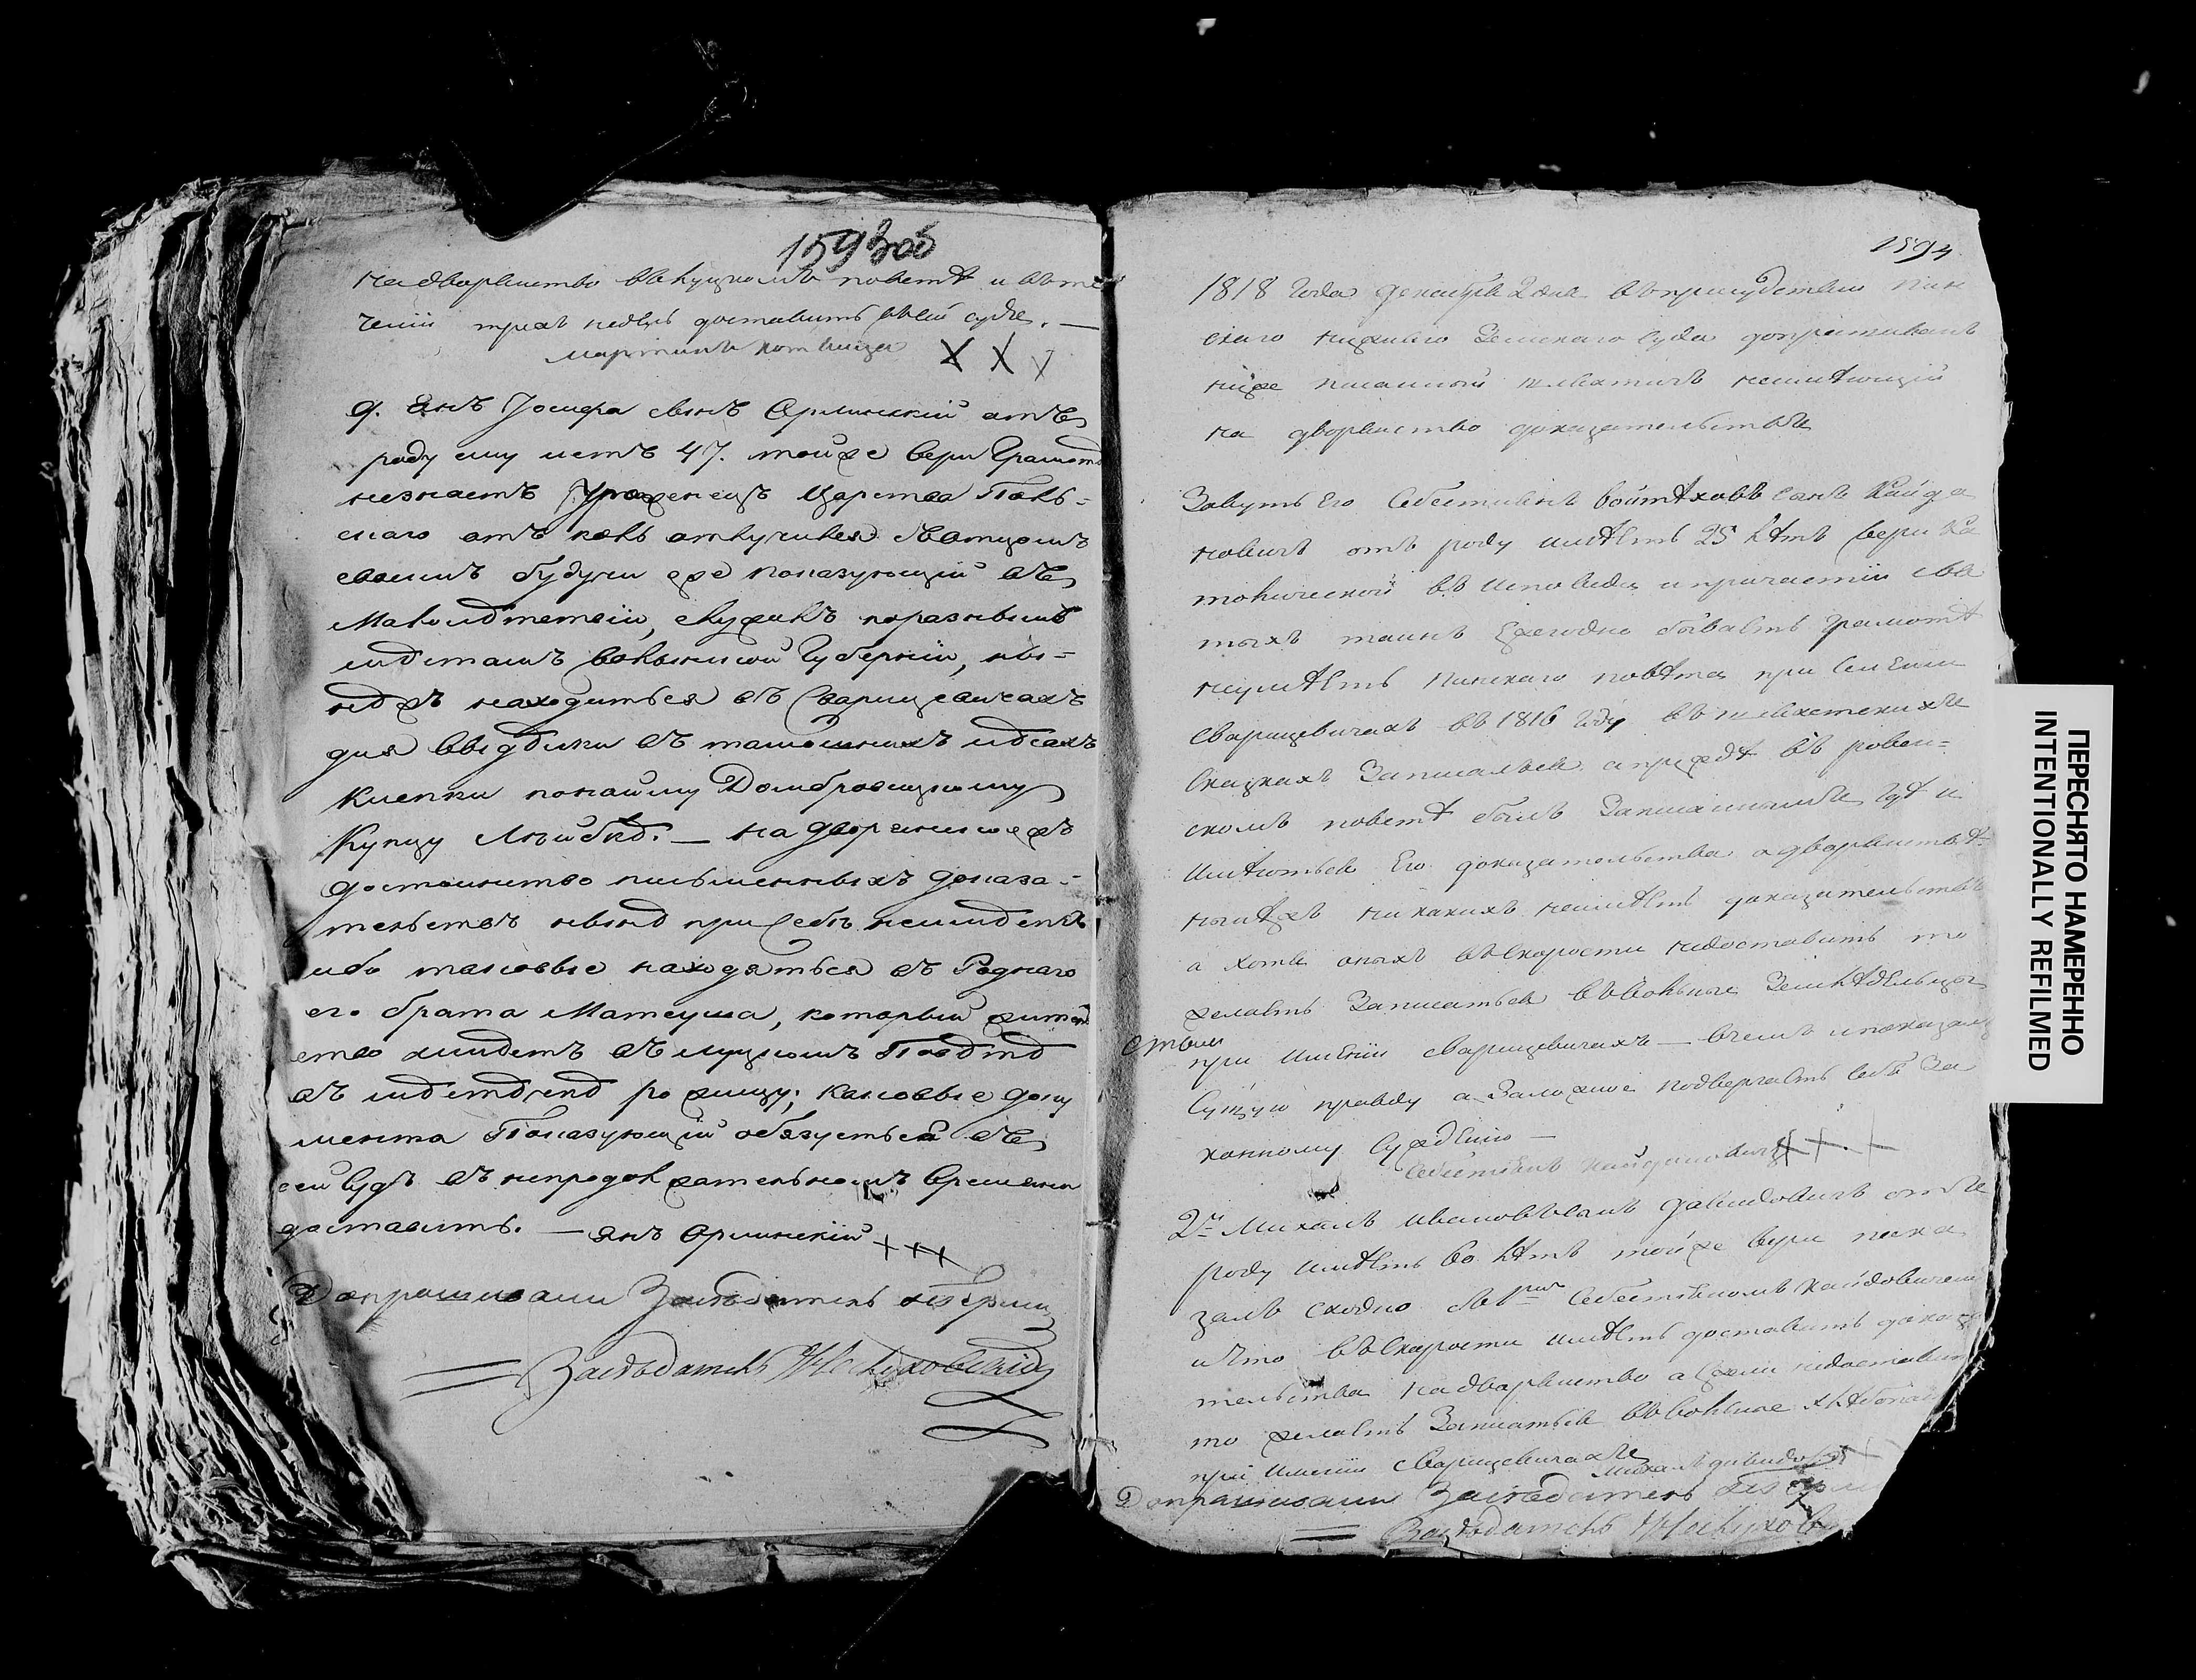 1593об
на дворянство в Луцкомъ повете и въ те
чении трехъ недель доставить въ сей судъ. —
Мартинъ X X X
9. Янъ Иосифа сынъ Орлинский отъ
роду ему летъ 47. тойже веры Грамоте
незнаетъ Уроженецъ Царства Поль=
скаго отъ коль отлучився съ отцомъ
своимъ будучи еже показующий въ
Малолѣтствіи, служилъ поразнымъ
мѣстамъ Волынской Губерніи, ны=
нѣжъ находиться въ Сварицевичахъ
для выдѣлки въ тамошнихъ лѣсахъ
Клепки понайму Домбровицкому
Купцу Лейбѣ. — на дворянскоежъ
достоинство письменныхъ доказа=
тельствъ нынѣ при себѣ неимѣетъ
ибо таковые находяться въ Роднаго
его брата Матеуша, который жител
ство имѣетъ въ луцкомъ Повѣтѣ
въ мѣстѣчкѣ Рожищу; каковые доку
мента Показующій обязуеться въ
сей Судъ въ непродолжательномъ времени
доставить. — Янъ Орлинскій +++
Допрашивали Засѣдатель
= Засѣдатель
1594
1818 года декабря 2 дня въ присудствии Пин
скаго нижнего Земскаго Суда допрашиванъ
ниже писанной шляхтичъ неимѣющій
на дворянство доказательствъ
Зовутъ Его Себестиянъ Войтѣховъ сынъ Кайда
новичъ отъ роду имѣетъ 25 лѣтъ веры Ка
толической въ исповеди и причастіи свя
тыхъ таинъ Ежегодно бываетъ Грамотѣ
неумѣетъ Пинскаго повѣта при Селении
Сварицевичахъ въ 1816 году въ шляхетскихъ
Сказкахъ Записался а прежде въ ровен=
скомъ поветѣ былъ Записаннымъ гдѣ и
имѣються Его доказательства о дворянствѣ
нынѣжъ никакихъ неимѣетъ доказательствъ
а хотя оныхъ въ скорости недоставитъ то
желаетъ Записаться въ вольные Земледѣльцы
при Имении Сварицевичахъ — въ чемъ и показалъ
сущую правду а Заложное подвергаетъ себя За
конному Сужденію —
Себестиянъ Кайдановичъ + + +
2й Михалъ Ивановъ сынъ Давидовичъ отъ
роду имѣетъ 60 лѣтъ тойже веры пока
залъ сходно съ 1мъ Себестианомъ Кайдановичемъ
и что въ скорости имѣетъ доставить доказа
тельства на дворянство а ежели недоставитъ
то желаетъ Записаться въ вольные
при Имении Сварицевичахъ
Михалъ Давидо
Допрашивали Засѣдатель
= Засѣдатель
ПЕРЕСНЯТО НАМЕРЕННО
INTENTIONALLY REFILMED